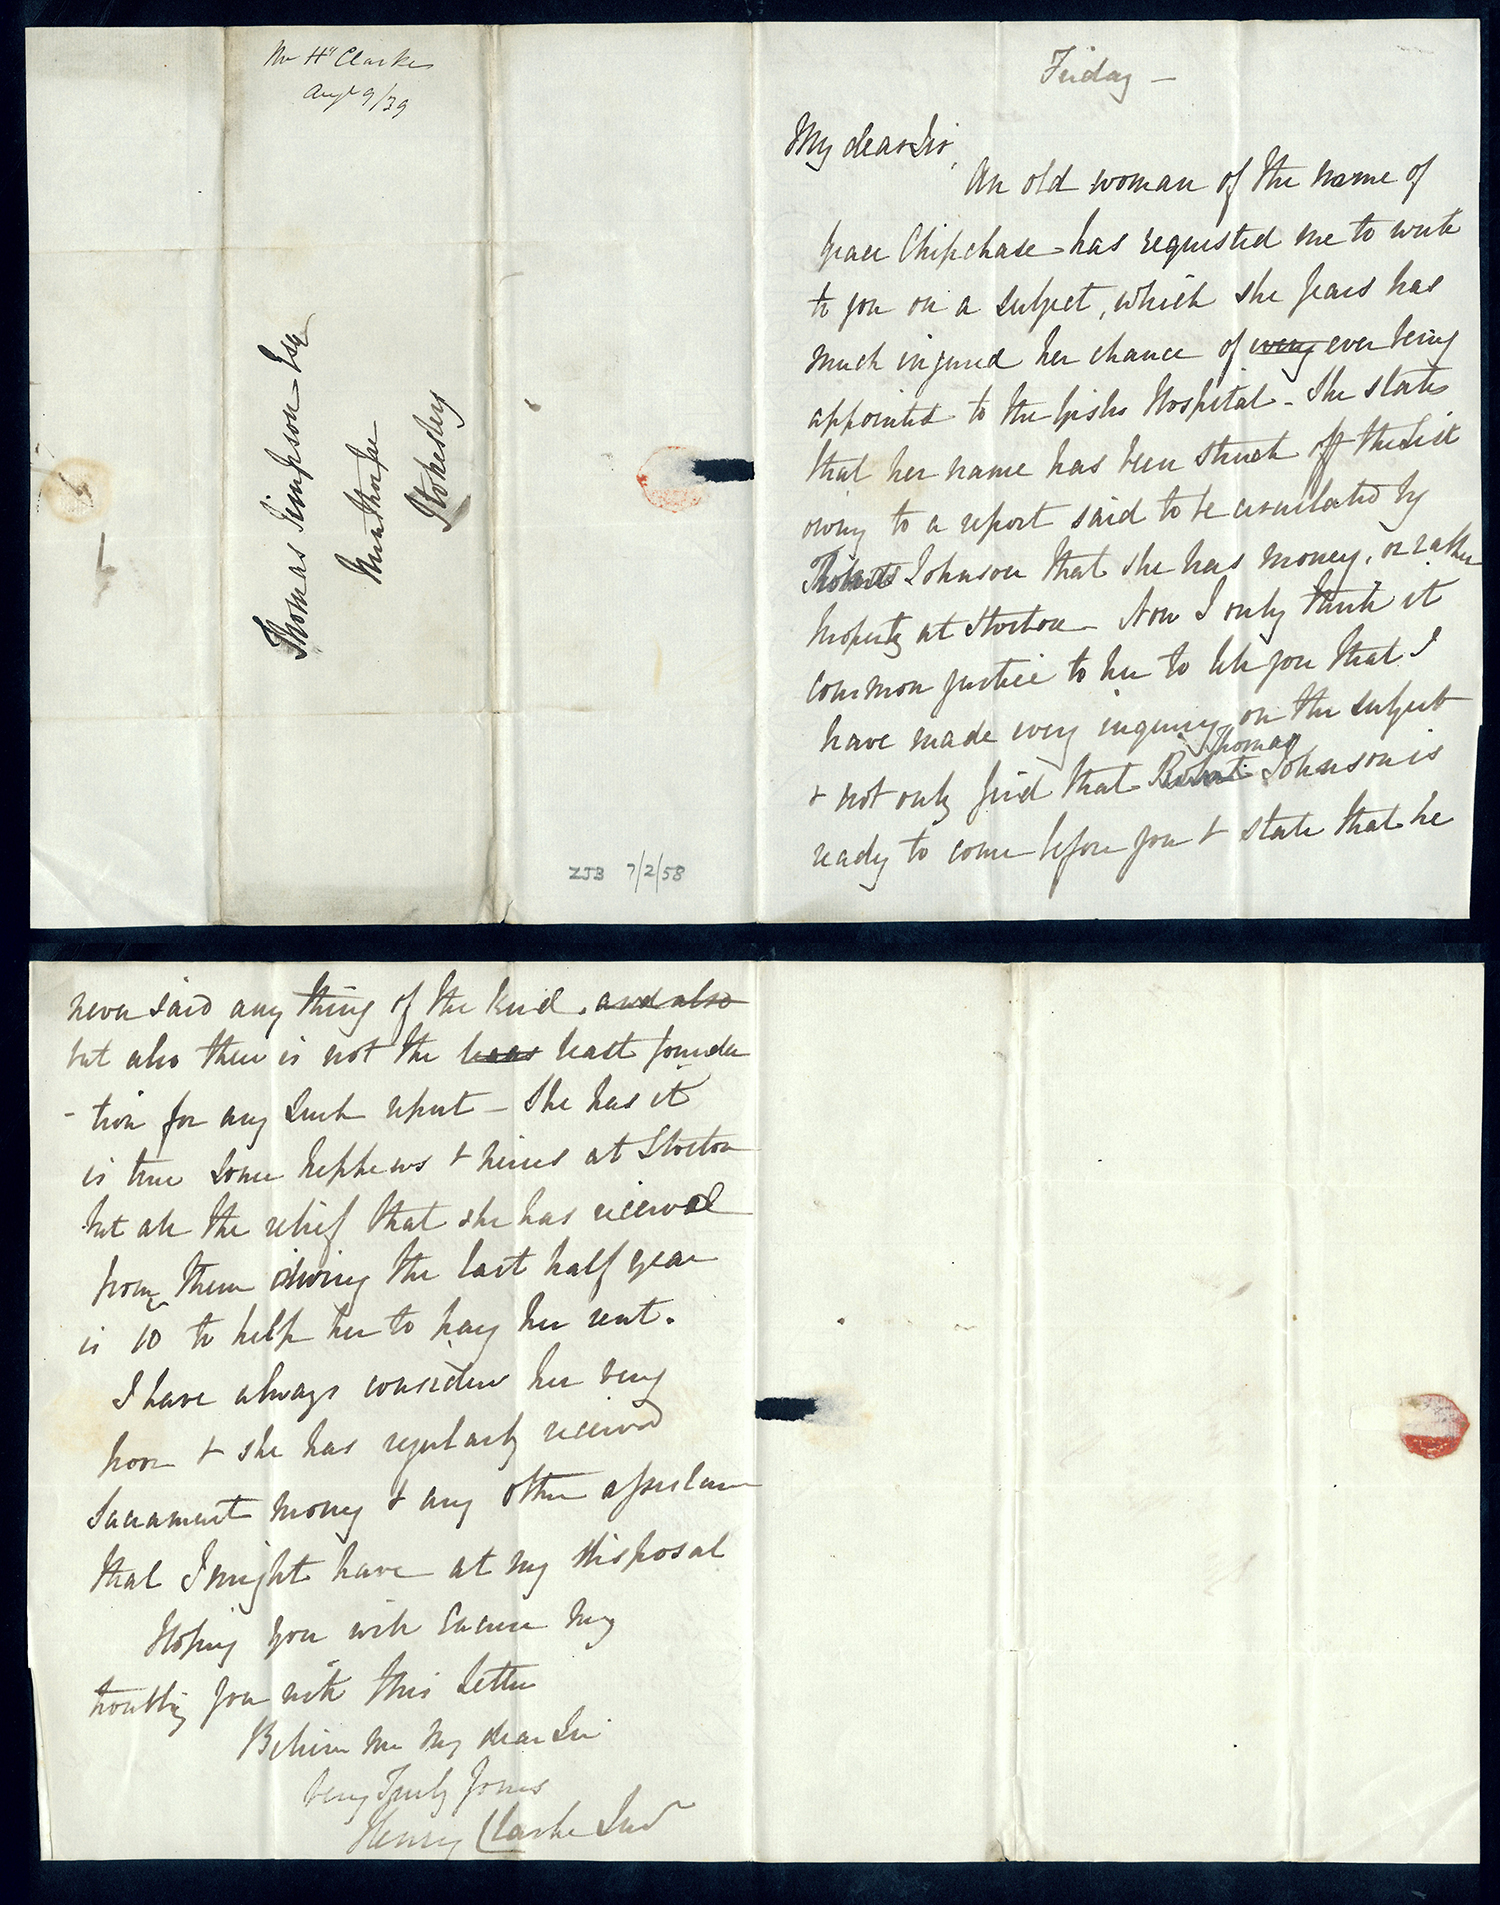 Mr Hy Clarke
Augt 9/39
Thomas Simpson Esq
Nunthorpe
Stokesley
ZJB 7/2/58
Friday –
My dear Sir,
An old woman of the name of
Grace Chipchase has requested me to write
to you on a subject, which she fears has
much injured her chance of every ever being
appointed to the Hospital – She states
that her name has been struck off the List
owing to a report said to be circulated by
Johnson that she has money, or rather
property at Stockton – Now I only think it
common justice to her to tell you that I
have made every inquiry on the subject
& not only find that Robert Thomas Johnson is
ready to come before you & state that he
never said any thing of the kind, and also
but also there is not the least founda
-tion for any such report – She has it
is true some nephews & nieces at Stockton
but all the relief that she has received
from them during the last half year
is 10 to help her to pay her rent.
I have always considered her very
poor & she has regularly received
Sacrament money & any other assistance
that I might have at my disposal
Hoping you will excuse my
troubling you with this letter
Believe me my dear Sir
Very Truly Yours
Henry Clarke Junr